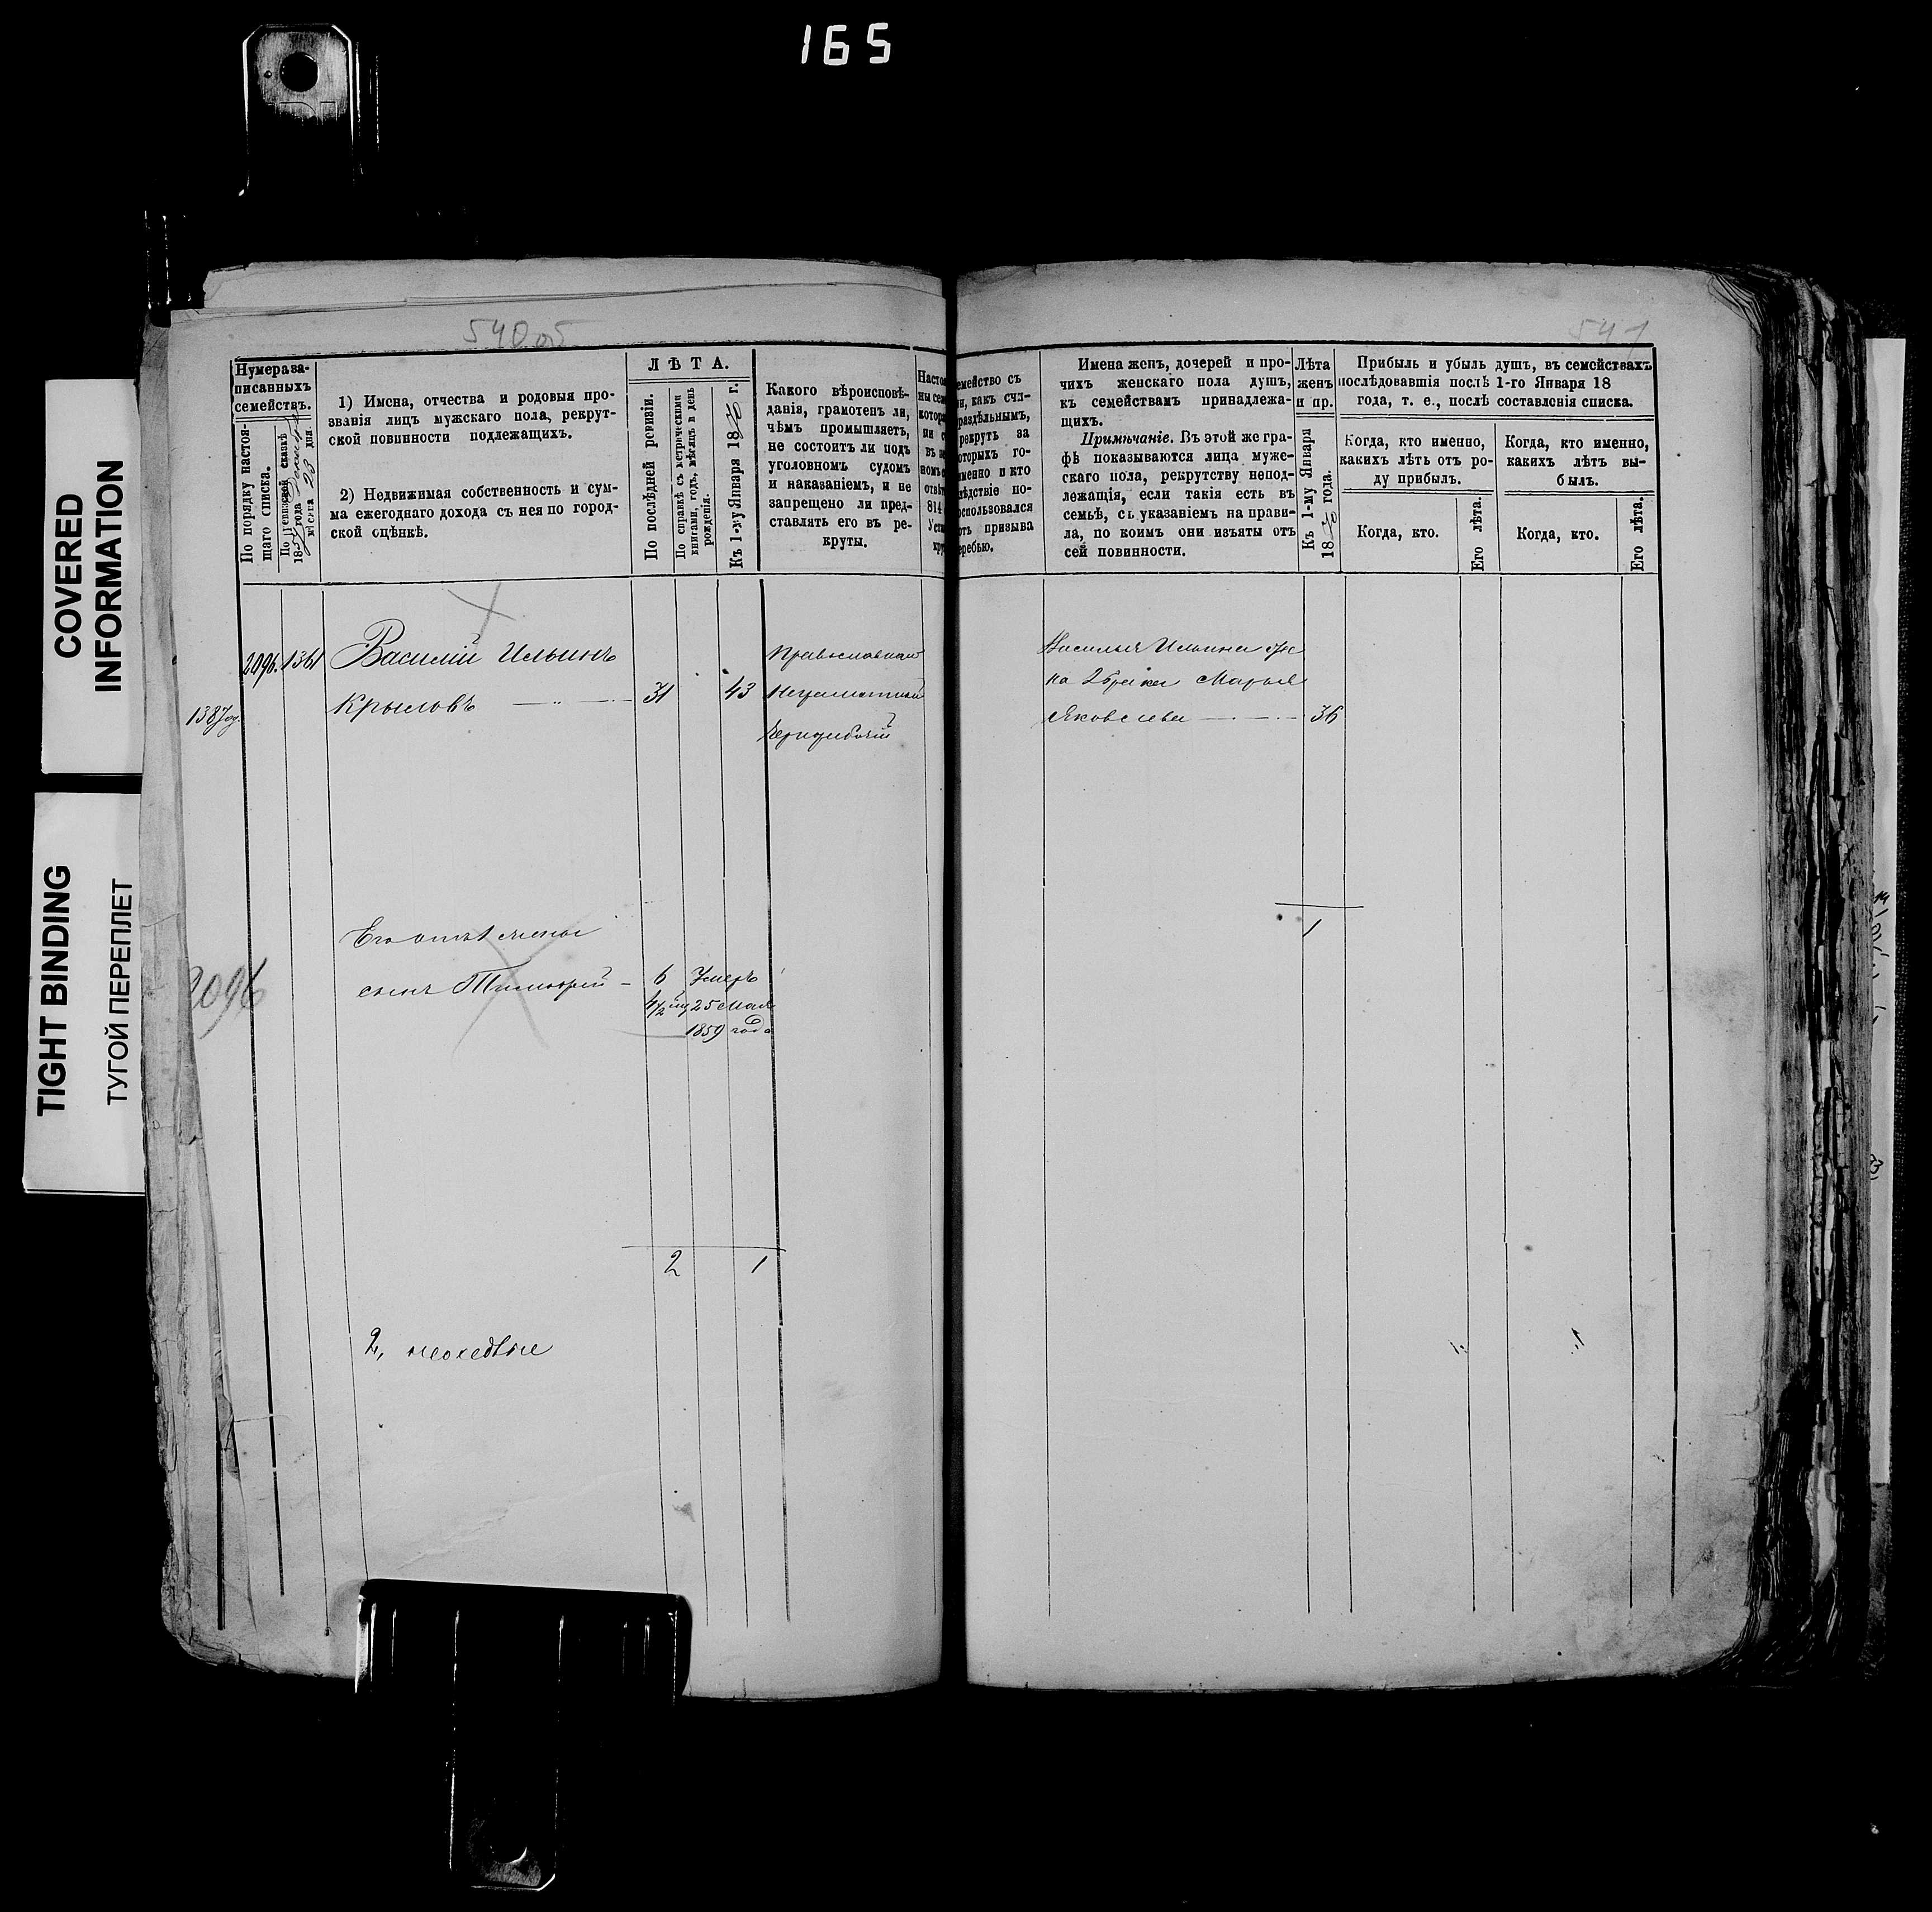 165
COVERED
INFORMATION
TIGHT BINDING
ТУГОЙ ПЕРЕПЛЕТ
540 об
Нумера за-
писанныхъ
семействъ.
По порядку настоя-
щаго списка.
По ревизской сказкѣ
18 года
мѣсяца 23 дня.
1) Имена, отчества и родовыя про-
званія лицъ мужскаго пола, рекрут-
ской повинности подлежащихъ.
2) Недвижимая собственность и сум-
ма ежегоднаго дохода съ нея по город-
ской оцѣнкѣ.
ЛѢТА.
По послѣдней ревизіи.
По справкѣ съ метрическими
книгами, годъ, мѣсяцъ и день
рожденія.
Къ 1-му Января 1870 г.
Какого вѣроисповѣ-
данія, грамотенъ ли,
чѣмъ промышляетъ,
не состоитъ ли подъ
уголовномъ судомъ
и наказаніемъ, и не
запрещено ли пред-
ставлять его въ ре-
круты.
2096. 1361 Василій Ильинъ
Крыловъ 31 43
1387
Православнаго
Неграмотный
Чернорабочій
Его отъ 1 жены
сынъ Тимофей 6 Умеръ
25 Мая
1859 года
2096
2 1
2,
541
семейство съ
какъ счи-
раздѣльнымъ,
рекрутъ за
которыхъ го-
именно и кто
слѣдствіе по-
воспользовался
отъ призыва
жеребью.
Имена женъ, дочерей и про-
чихъ женскаго пола душъ,
къ семействамъ принадлежа-
щихъ.
Примѣчаніе. Въ этой же гра-
фѣ показываются лица муже-
скаго пола, рекрутству непод-
лежащія, если такія есть въ
семьѣ, съ указаніемъ на прави-
ла, по коимъ они изъяты отъ
сей повинности.
Лѣта
женъ
и пр.
Къ 1-му Января
1870 года.
Прибыль и убыль душъ, въ семействахъ
послѣдовавшія послѣ 1-го Января 18
года, т. е., послѣ составленія списка.
Когда, кто именно,
какихъ лѣтъ отъ ро-
ду прибылъ.
Когда, кто.
Его лѣта.
Когда, кто именно,
какихъ лѣтъ вы-
былъ.
Когда, кто.
Его лѣта.
Василья Ильина же
на 2 брака Марья
Яковлева 36
1